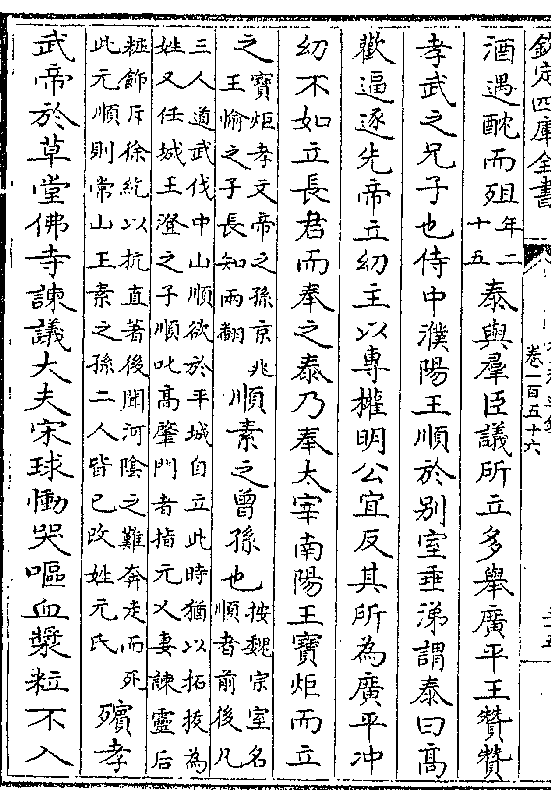 欽定四庫全書
卷一百五十六
酒遇酖而殂年二十五泰與羣臣議所立多舉廣平王贊贊
孝武之兄子也侍中濮陽王順於别室垂涕謂泰曰高
歡逼逐先帝立幼主以專權明公宜反其所為廣平冲
幼不如立長君而奉之泰乃奉太宰南陽王寶炬而立
之寶炬孝文帝之孫京兆王愉之子長知兩翻順素之曾孫也按魏宗室名順者前後凡
三人道武伐中山順欲於平城自立此時猶以拓拔為
姓又任城王澄之子順叱高肇門者指元乂妻諫靈后
粧飾斥徐紇以抗直著後聞河陰之難奔走而死
此元順則常山王素之孫二人皆已改姓元氏殯孝
武帝於草堂佛寺諫議大夫宋球慟哭嘔血漿粒不入